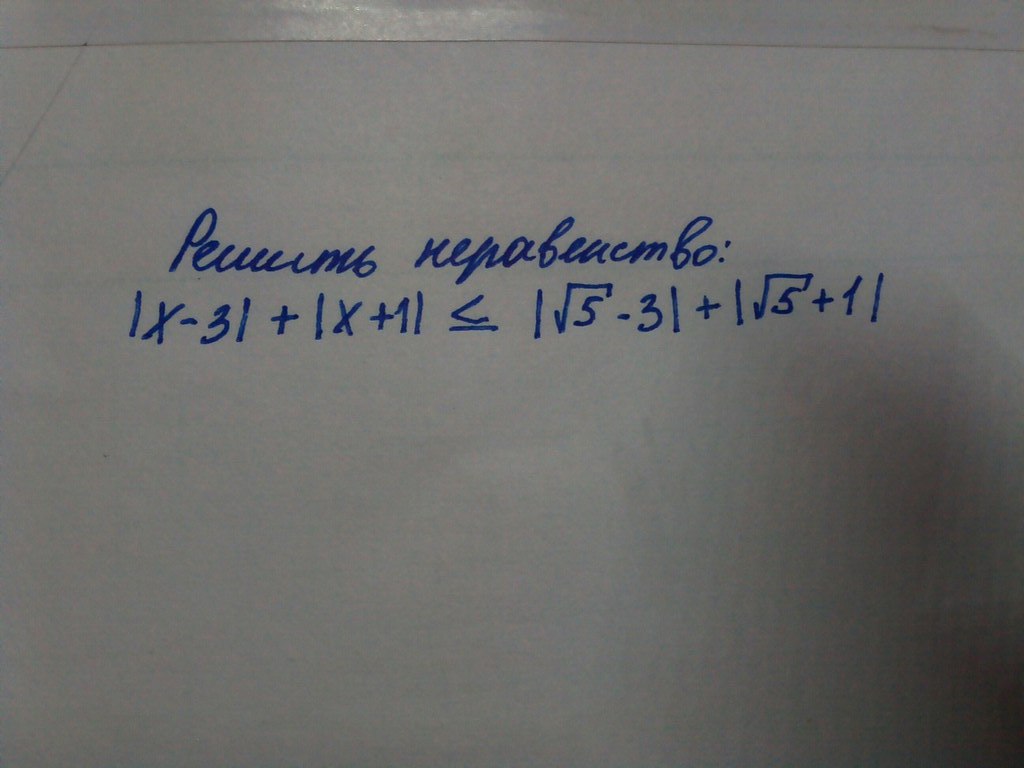 Решить неравенство:
|x-3| + |x+1| ≤ |√5-3|+|√5+1|